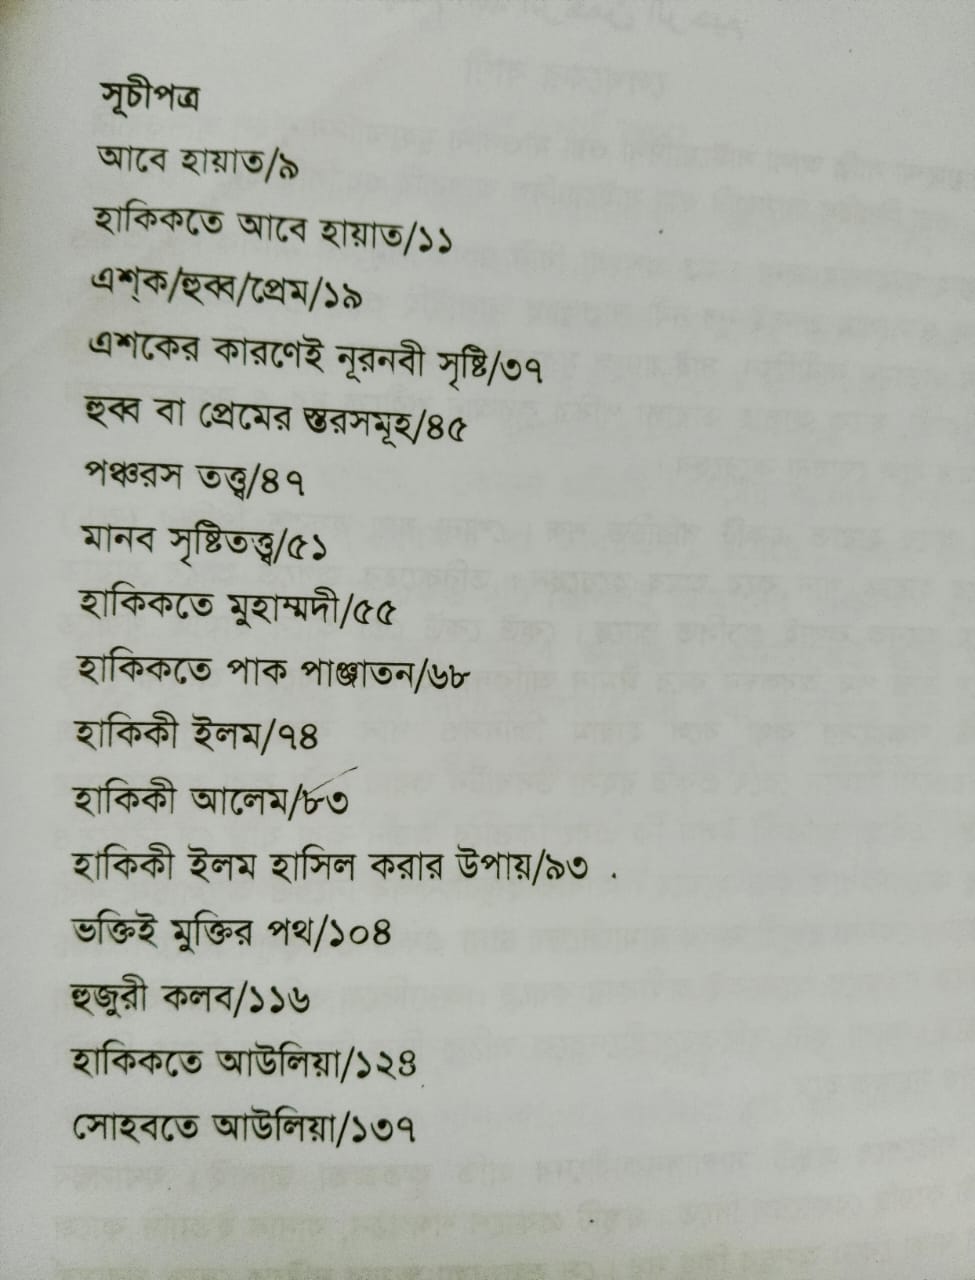 সূচীপত্র
আবে হায়াত/৯
হাকিকতে আবে হায়াত/১১
এশ্‌ক/হুব্ব/প্রেম/১৯
এশকের কারণেই নূরনবী সৃষ্টি/৩৭
হুব্ব বা প্রেমের স্তরসমূহ/৪৫
পঞ্চরস তত্ত্ব/৪৭
মানব সৃষ্টিতত্ত্ব/৫১
হাকিকতে মুহাম্মদী/৫৫
হাকিকতে পাক পাঞ্জাতন/৬৮
হাকিকী ইলম/৭৪
হাকিকী আলেম/৮৩
হাকিকী ইলম হাসিল করার উপায়/৯৩ .
ভক্তিই মুক্তির পথ/১০৪
হুজুরী কলব/১১৬
হাকিকতে আউলিয়া/১২৪
সোহবতে আউলিয়া/১৩৭